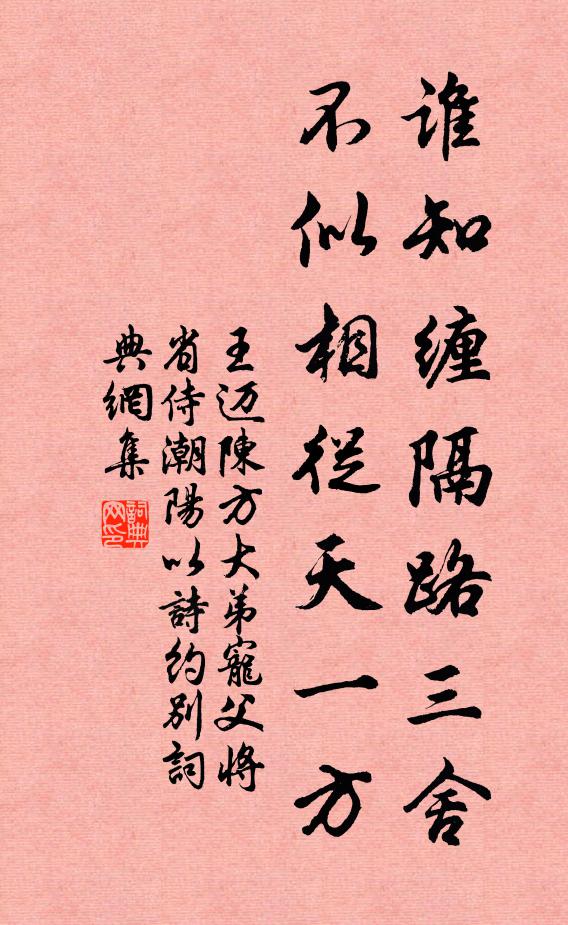 谁知缠隔路三舍
不似相從天一方
王迈陳方大弟寵父将
省侍潮陽以詩約別詞
典網集
詞典網印